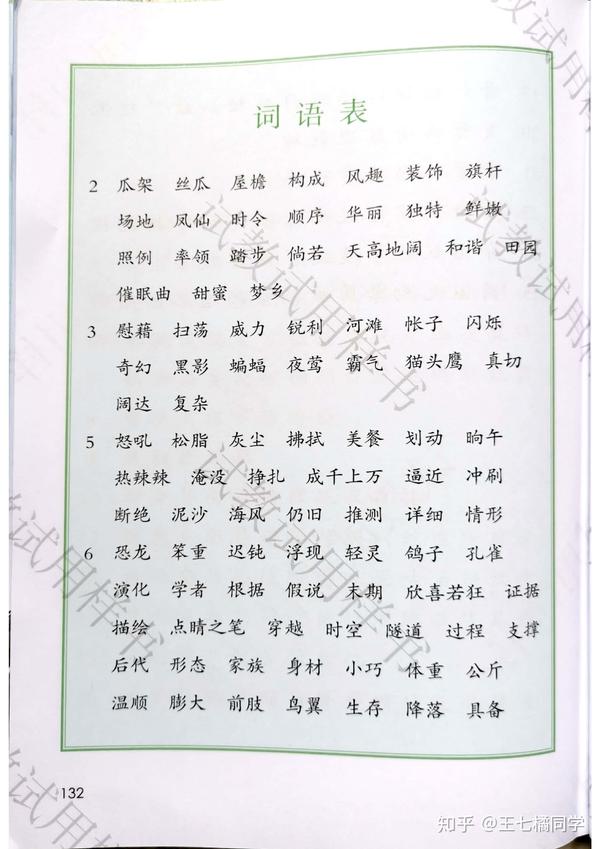 词语表
2 瓜架 丝瓜 屋檐 构成 风趣 装饰 旗杆
场地 凤仙 时令 顺序 华丽 独特 鲜嫩
照例 率领 踏步 倘若 天高地阔 和谐 田园
催眠曲 甜蜜 梦乡
3 慰藉 扫荡 威力 锐利 河滩 帐子 闪烁
奇幻 黑影 蝙蝠 夜莺 霸气 猫头鹰 真切
阔达 复杂
5 怒吼 松脂 灰尘 拂拭 美餐 划动 晌午
热辣辣 淹没 挣扎 成千上万 逼近 冲刷
断绝 泥沙 海风 仍旧 推测 详细 情形
6 恐龙 笨重 迟钝 浮现 轻灵 鸽子 孔雀
演化 学者 根据 假说 末期 欣喜若狂 证据
描绘 点睛之笔 穿越 时空 隧道 过程 支撑
后代 形态 家族 身材 小巧 体重 公斤
温顺 膨大 前肢 鸟翼 生存 降落 具备
132
试教试用样书
试教试用样书
试教试用样书
试教试用样书
试教试用样书
知乎 @王七橘同学